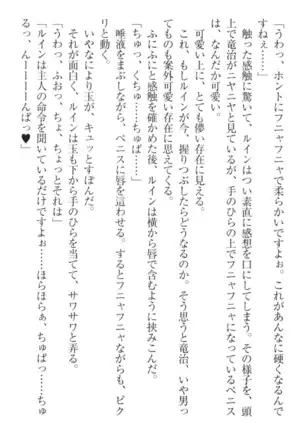 「うわっ、ホントにフニャフニャで柔らかいですよぉ。これがあんなに硬くなるんで
すねぇ……」
触った感触に驚いて、ルインはつい素直に感想を口にしてしまう。その様子を、頭
上で竜治がニヤニヤと見ているが、手のひらの上でフニャフニャになっているペニス
は、なんだか可愛い。
可愛い上に、とても儚い存在に見える。
これ、もしルインが今、握りつぶしたらどうなるのか。そう思うと竜治、いや男っ
てものも案外可愛い存在に思えてくる。
ふにふにと感触を確かめた後、ルインは横から唇で含むように挟みこんだ。
「ちゅっ、くちゅ……ちゅぱ……」
唾液をまぶしながら、ペニスに唇を這わせる。するとフニャフニャながらも、ピク
リと動く。
いやなにより玉が、キュッとすぼんだ。
それが面白く、ルインは玉も下から手のひらを当てて、サワサワと弄る。
「うわっ、ふおっ、ちょ、ちょっとそれは」
「ルインは主人の命令を聞いているだけですよぉ……ほらほらぁ、ちゅぱっ……ちゅ
るっ、んーーーーんぱっ♥」